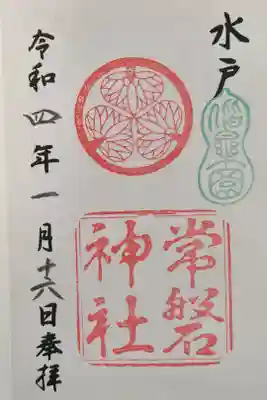 水戸
常磐
神社
令和四年一月十六日奉拝